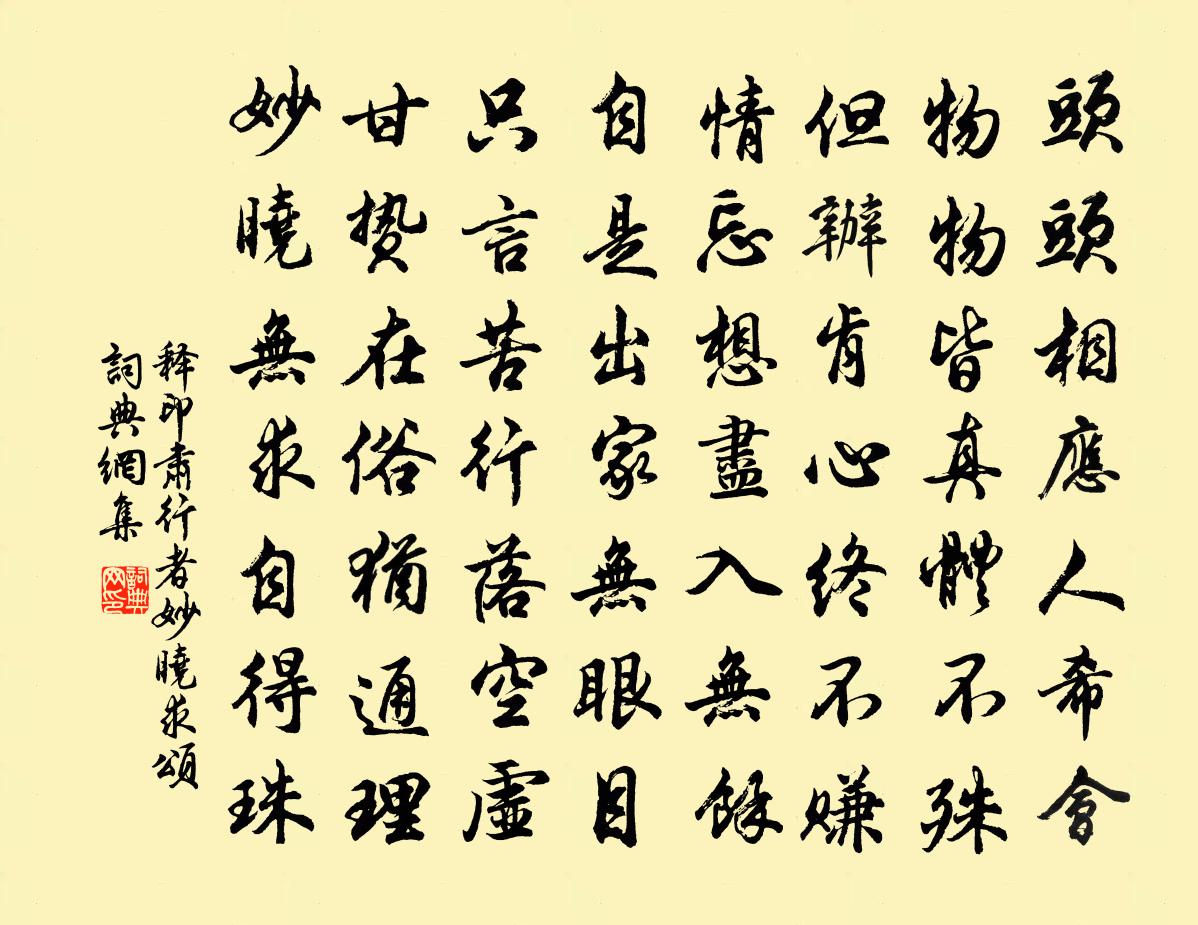 頭頭相應人希會
物物皆真體不殊
但辦肯心終不賺
情忘想盡入無餘
自是出家無眼目
只言苦行落空虛
甘贄在俗猶通理
妙曉無求自得珠
释印肅行者妙曉求頌
詞典網集
詞典网印